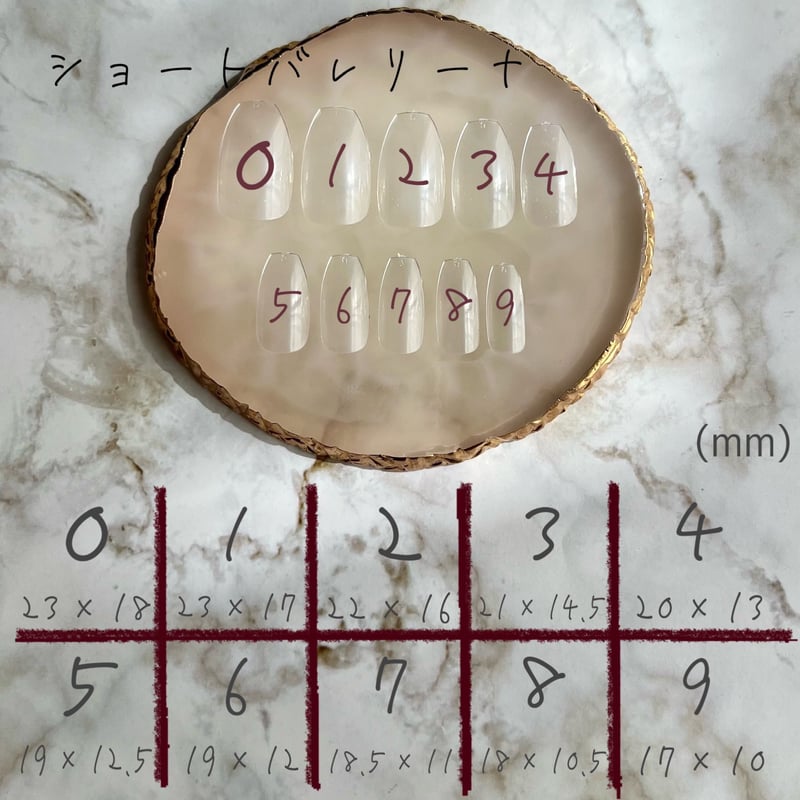 ショートバレリーナ
0 1 2 3 4
5 6 7 8 9
(mm)
0 1 2 3 4
23 × 18 23 × 17 22 × 16 21 × 14.5 20 × 13
5 6 7 8 9
19 × 12.5 19 × 12 18.5 × 11 18 × 10.5 17 × 10